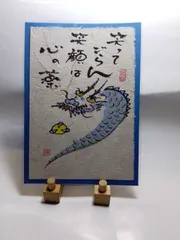 笑って
ごらん
笑顔は
心の薬